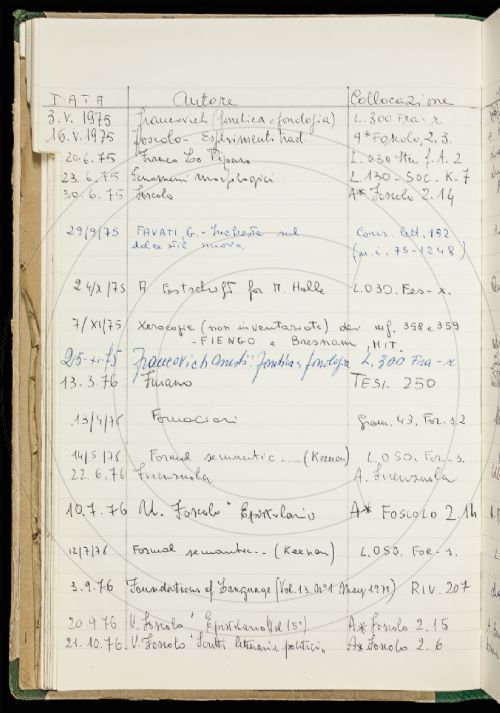 DATA Autore Collocazione
3.V.1975 Francovich (fonetica e fonologia) L.300 Fra-r
16.V.1975 Foscolo - Esperimenti trad. A*Foscolo, 2.3.
20.6.75 Franco Lo Piparo L.030 f.A.2
23.6.75 morfologici L130-SOC.K-7
30.6.75 Foscolo A*Foscolo 2.14
29/9/75 FAVATI, G. - Inchiesta sul Cons. lett. 192
dolce stil nuovo (n.i. 75-1248)
24/X/75 A Festschrift for M. Halle L.030. Fes-x.
7/XI/75 Xerocopie (non inventariate) dei 358 e 359
- FIENGO e Bresnan, MIT.
25-XI-75 Francovich Onesti: fonetica e fonologia L.300 Fra-r
13.3.76 Furano TESI 250
13/4/76 Formaciari Gram. 43. For-s.2
14/5/76 Formal semantic.... (Keenan) L.050. For-s.
22.6.76 Firenzuola A. Firenzuola
10.7.76 U. Foscolo "Epistolario A* FOSCOLO 2.14
12/7/76 Formal semantic... (Keenan) L.050. For-s.
3.9.76 Foundations of Language (Vol.13. N°1 May 1975) RIV. 207
20.9.76 V. Foscolo "Epistolario A*Foscolo 2.15
21.10.76 V. Foscolo "Scritti letterari e politici" A*Foscolo 2.6